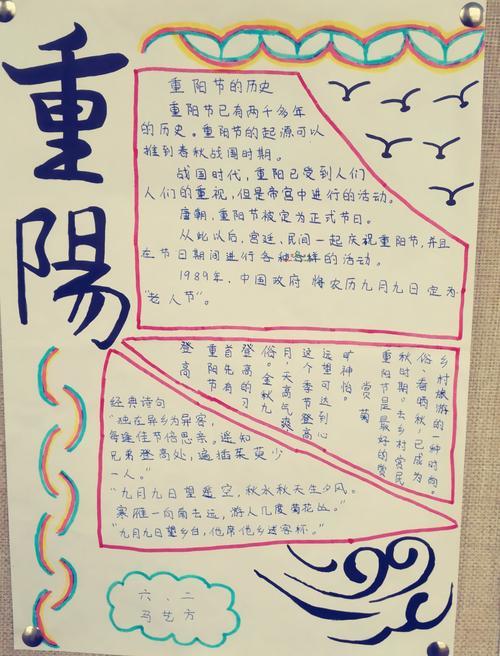 重陽
重阳节的历史
重阳节已有两千多年
的历史。重阳节的起源可以
推到春秋战国时期。
战国时代，重阳已受到人们
人们的重视，但是帝宫中进行的活动。
唐朝，重阳节被定为正式节日。
从此以后，宫廷、民间一起庆祝重阳节，并且
在节日期间进行各种各样的活动。
1989年，中国政府将农历九月九日定为
“老人节”。
登高
重阳节
首先有
登高的习
俗。金秋九
月，天高气爽
这个季节登高
远望可达到心
旷神怡
赏菊
重阳节是最好的赏
秋时期。去乡村赏民
俗、看晒秋，已成为
乡村旅游的一种时尚。
经典诗句
“独在异乡为异客，
每逢佳节倍思亲。遥知
兄弟登高处，遍插茱萸少
一人。”
“九月九日望遥空，秋水秋天生夕风。
寒雁一向南去远，游人几度菊花丛。”
“九月九日望乡台，他席他乡送客杯。”
六、二
马艺方